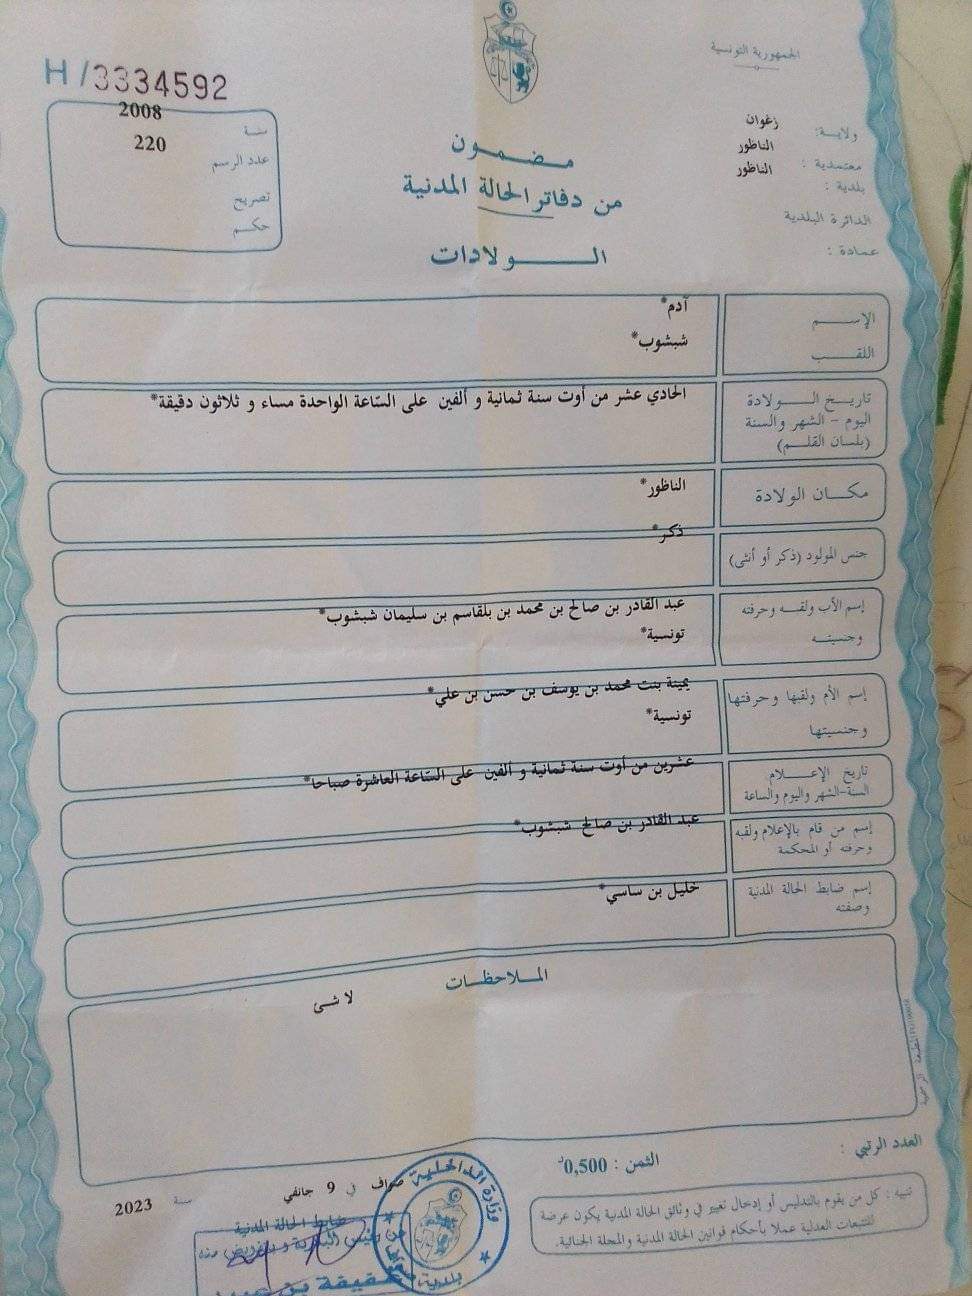 الجمهورية التونسية
H/3334592
سنة 2008
عدد الرسم 220
تصريح
حكم
ولاية: زغوان
معتمدية : الناظور
بلدية : الناظور
الدائرة البلدية
عمادة :
مضمون
من دفاتر الحالة المدنية
الولادات
الإسم آدم*
اللقب شبشوب*
تاريخ الولادة
اليوم - الشهر والسنة
(بلسان القلم)
الحادي عشر من أوت سنة ثمانية و ألفين على السّاعة الواحدة مساء و ثلاثون دقيقة*
مكان الولادة الناظور*
جنس المولود (ذكر أو أنثى) ذكر*
إسم الأب ولقبه وحرفته
وجنسيته
عبد القادر بن صالح بن محمد بن بلقاسم بن سليمان شبشوب*
تونسية*
إسم الأم ولقبها وحرفتها
وجنسيتها
يمينة بنت محمد بن يوسف بن حسن بن علي*
تونسية*
تاريخ الإعلام
السنة-الشهر واليوم والساعة
عشرين من أوت سنة ثمانية و ألفين على السّاعة العاشرة صباحا*
إسم من قام بالإعلام ولقبه
وحرفته أو المحكمة
عبد القادر بن صالح شبشوب*
إسم ضابط الحالة المدنية
وصفته
خليل بن ساسي*
الملاحظات
لا شئ
العدد الرتبي :
الثمن : 0,500د
تنبيه : كل من يقوم بالتدليس أو إدخال تغيير في وثائق الحالة المدنية يكون عرضة
للتتبعات العدلية عملا بأحكام قوانين الحالة المدنية والمجلة الجنائية.
صواف في 9 جانفي سنة 2023
ضابط الحالة المدنية
وزارة الداخلية
بلدية